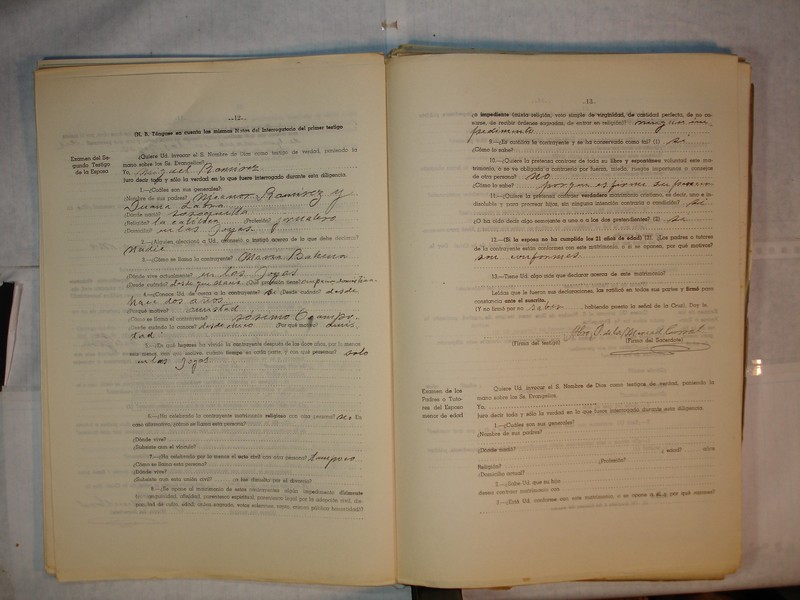 --12.--
(N. B. Téngase en cuenta las mismas Notas del Interrogatorio del primer testigo
Examen del Segundo Testigo de la Esposa
¿Quiere Ud. invocar el S. Nombre de Dios como testigo de verdad, poniendo la
mano sobre los Ss. Evangelios?
Yo, Miguel Ramirez
Juro decir toda y sólo la verdad en lo que fuere interrogado durante esta diligencia.
1.—¿Cuáles son sus generales?
¿Nombre de sus padres? Ramirez y
Juana
¿Dónde nació? ¿Edad?
¿Religión? la católica ¿Profesión? jornalero
¿Domicilio? en las Joyas
2.—¿Alguien aleccionó a Ud. o instruyó acerca de lo que debe declarar?
Nadie
3.—¿Cómo se llama la contrayente? Maria
¿Dónde vive actualmente? en las Joyas
¿Desde cuándo? desde que nació ¿Qué profesión tiene?
4.—¿Conoce Ud. de cerca a la contrayente? si ¿Desde cuándo? desde
hace dos años
¿Por qué motivo? amistad
¿Cómo se llama el contrayente? Ocampo
¿Desde cuándo le conoce? desde chico ¿Por qué motivo? amis-
tad
5.—¿En qué lugares ha vivido la contrayente después de los doce años, por lo menos
seis meses, con qué motivo, cuánto tiempo en cada parte, y con qué personas? solo
en las Joyas
6.—¿Ha celebrado la contrayente matrimonio religioso con otra persona? no En
caso afirmativo ¿cómo se llama esta persona?
¿Dónde vive?
¿Subsiste aún el vínculo?
7.—¿Ha celebrado por lo menos el acto civil con otra persona? tampoco
¿Cómo se llama esta persona?
¿Dónde vive?
¿Subsiste aún esta unión civil? o fue disuelta por el divorcio?
8.—¿Se opone al matrimonio de estos contrayentes algún impedimento dirimente
de consanguinidad, afinidad, parentesco espiritual, parentesco legal por la adopción civil,
13.
o impediente (mixta religión, voto simple de virginidad, de castidad perfecta, de no ca-
sarse, de recibir órdenes sagradas, de entrar en religión)? ningun im-
pedimento
9.—¿Es católica la contrayente y se ha conservado como tal? (1) si
¿Cómo lo sabe?
10.—¿Quiere la pretensa contraer de todo en libre y espontánea voluntad este ma-
trimonio, o se ve obligada a contraerlo por fuerza, miedo, ruegos importunos o consejos
de otra persona? no
¿Cómo lo sabe? porque es firme su
11.—¿Quiere la pretensa contraer verdadero matrimonio cristiano, es decir, uno e in-
disoluble y para procrear hijos, sin ninguna intención contraria o condición? si
¿O ha oído decir algo semejante a uno o a los dos pretendientes? (2) si
12.—(Si la esposa no ha cumplido los 21 años de edad) (3). ¿Los padres o tutores
de la contrayente están conformes con este matrimonio, o si se oponen, por qué motivos?
son conformes
13.—¿Tiene Ud. algo más que declarar acerca de este matrimonio?
Leídas que le fueron sus declaraciones, las ratificó en todas sus partes y firmó para
constancia ante el suscrito,
(Y no firmó por no saber habiendo puesto la señal de la Cruz). Doy fe.
(Firma del testigo) (Firma del Sacerdote)
Examen de los Padres o Tutores del Esposo menor de edad
Quiere Ud. invocar el S. Nombre de Dios como testigos de verdad, poniendo la
mano sobre los Ss. Evangelios
Yo,
juro decir toda y sólo la verdad en lo que fuere interrogado durante esta diligencia.
1.—¿Cuáles son sus generales?
¿Nombre de sus padres?
¿Dónde nació? ¿edad? años
Religión? ¿Profesión?
¿Domicilio actual?
2.—¿Sabe Ud. que su hijo
desea contraer matrimonio con
3.—¿Está Ud. conforme con este matrimonio, o se opone a él, y por qué razones?